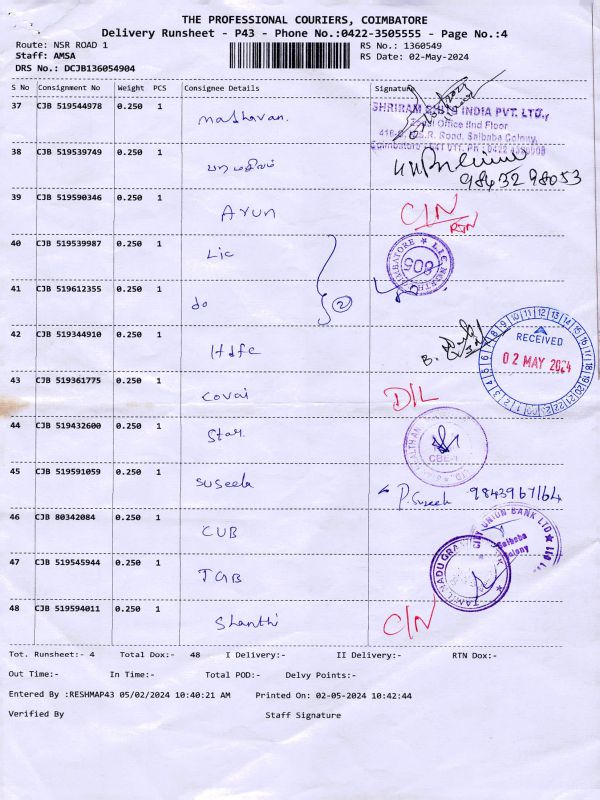 THE PROFESSIONAL COURIERS, COIMBATORE
Delivery Runsheet - P43 - Phone No.:0422-3505555 - Page No.:4
Route: NSR ROAD 1 RS No.: 1360549
Staff: AMSA RS Date: 02-May-2024
DRS No.: DCJB136054904
S No Consignment No Weight PCS Consignee Details Signature
37 CJB 519544978 0.250 1 Madhavan.
INDIA PVT. LTD.,
Office IInd Floor
Road, Saibaba Colony,
38 CJB 519539749 0.250 1
98432 98053
39 CJB 519590346 0.250 1 Arun C/N
RTN
40 CJB 519539987 0.250 1 Lic
LIC NORTH COIMBATORE
908
41 CJB 519612355 0.250 1 do 2
42 CJB 519344910 0.250 1 Hdfc
RECEIVED
02 MAY 2024
43 CJB 519361775 0.250 1 Covai D/L
44 CJB 519432600 0.250 1 Star
45 CJB 519591059 0.250 1 Suseela P. Suseela 9843967164
46 CJB 80342084 0.250 1 CUB
CITY UNION BANK LTD
Saibaba
Colony
47 CJB 519545944 0.250 1 TGB
TAMIL NADU GRAMA
48 CJB 519594011 0.250 1 Shanthi C/N
Tot. Runsheet:- 4 Total Dox:- 48 I Delivery:- II Delivery:- RTN Dox:-
Out Time:- In Time:- Total POD:- Delvy Points:-
Entered By :RESHMAP43 05/02/2024 10:40:21 AM Printed On: 02-05-2024 10:42:44
Verified By Staff Signature